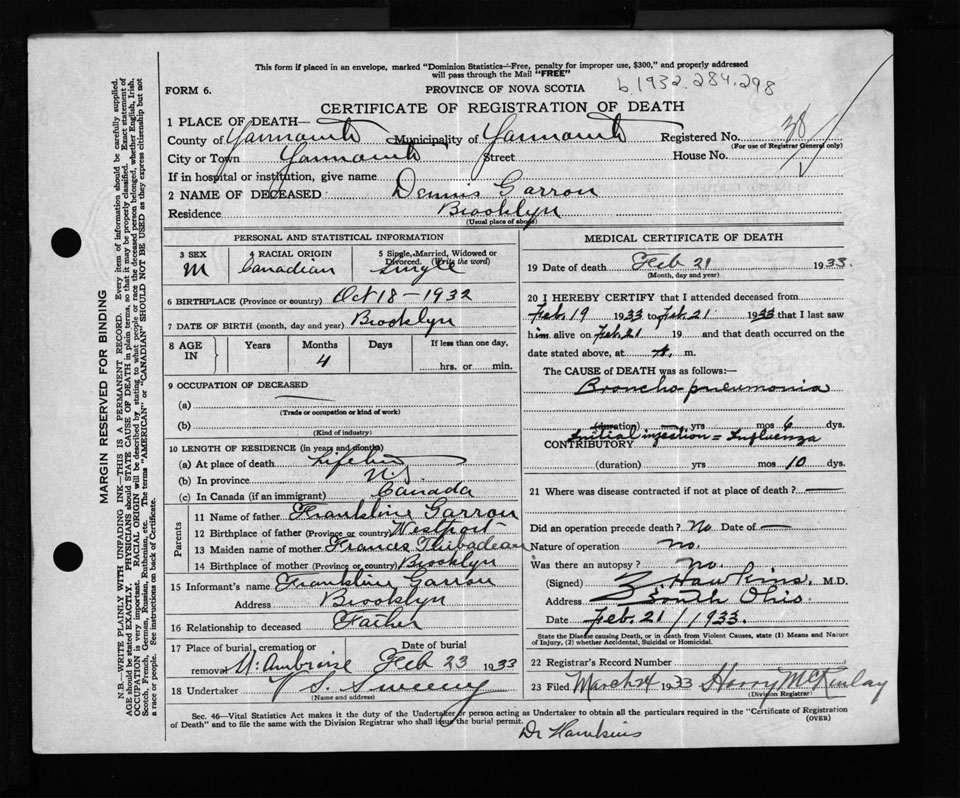 This form if placed in an envelope, marked "Dominion Statistics—Free, penalty for improper use, $300," and properly addressed
will pass through the Mail "FREE"
FORM 6.
PROVINCE OF NOVA SCOTIA
b.1932.284.298
CERTIFICATE OF REGISTRATION OF DEATH
1 PLACE OF DEATH—
County of Yarmouth Municipality of Yarmouth Registered No. 38
(For use of Registrar General only)
City or Town Yarmouth Street House No.
If in hospital or institution, give name
2 NAME OF DECEASED Dennis Garron
Residence Brooklyn
(Usual place of abode)
PERSONAL AND STATISTICAL INFORMATION
3 SEX 4 RACIAL ORIGIN 5 Single, Married, Widowed or Divorced. (Write the word)
M Canadian Single
6 BIRTHPLACE (Province or country) Oct 18 - 1932
7 DATE OF BIRTH (month, day and year) Brooklyn
8 AGE IN Years Months Days If less than one day,
4 hrs. or min.
9 OCCUPATION OF DECEASED
(a)
(Trade or occupation or kind of work)
(b)
(Kind of industry)
10 LENGTH OF RESIDENCE (in years and months)
(a) At place of death Lifetime
(b) In province N.S.
(c) In Canada (if an immigrant) Canada
Parents
11 Name of father Frankline Garron
12 Birthplace of father (Province or country) Westport
13 Maiden name of mother Francis Thibadeau
14 Birthplace of mother (Province or country) Brooklyn
15 Informant's name Frankline Garron
Address Brooklyn
16 Relationship to deceased Father
17 Place of burial, cremation or removal Date of burial
Ambroise Feb 23 1933
18 Undertaker V S. Sweeny
(Name and address)
MEDICAL CERTIFICATE OF DEATH
19 Date of death Feb 21 1933.
(Month, day and year)
20 I HEREBY CERTIFY that I attended deceased from
Feb. 19 1933 to Feb. 21 1933 that I last saw
him alive on Feb. 21 19 and that death occurred on
date stated above, at A. m.
The CAUSE of DEATH was as follows:—
Broncho pneumonia
(duration) yrs mos 6 dys.
CONTRIBUTORY Initial injection = Influenza
(duration) yrs mos 10 dys.
21 Where was disease contracted if not at place of death? —
Did an operation precede death? No Date of —
Nature of operation no.
Was there an autopsy? no.
(Signed) Z. Hawkins, M.D.
Address South Ohio.
Date Feb. 21 / 1933.
State the Disease causing Death, or in death from Violent Causes, state (1) Means and Nature
of Injury, (2) whether Accidental, Suicidal or Homicidal.
22 Registrar's Record Number
23 Filed March 24 1933 Harry McKinlay
(Division Registrar)
Sec. 46—Vital Statistics Act makes it the duty of the Undertaker or person acting as Undertaker to obtain all the particulars required in the "Certificate of Registration
of Death" and to file the same with the Division Registrar who shall issue the burial permit. (OVER)
Dr Hawkins
MARGIN RESERVED FOR BINDING
N.B.—WRITE PLAINLY WITH UNFADING INK—THIS IS A PERMANENT RECORD. Every item of information should be carefully supplied.
AGE should be stated EXACTLY. PHYSICIANS should STATE CAUSE OF DEATH in plain terms, so that it may be properly classified. Exact statement of
OCCUPATION is very important. RACIAL ORIGIN will be described by stating to what people or race the deceased person belonged, whether English, Irish,
Scotch, French, German, Russian, Ruthenian, etc. The terms "AMERICAN" or "CANADIAN" SHOULD NOT BE USED as they express citizenship but not
a race or people. See instructions on back of Certificate.